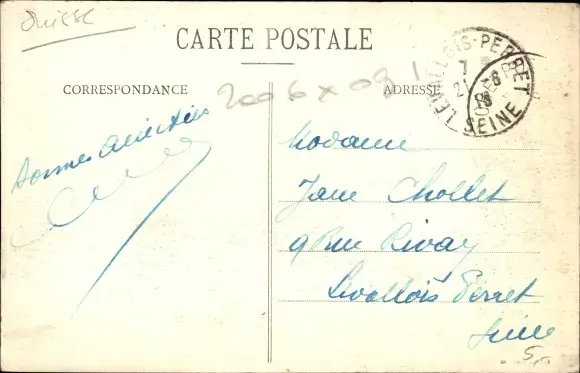 Suisse
CARTE POSTALE
CORRESPONDANCE
ADRESSE
LEVALLOIS-PERRET
SEINE
Bonnes Amitiés
Madame
Jane Chollet
9 Rue Rivay
Levallois Perret
Seine